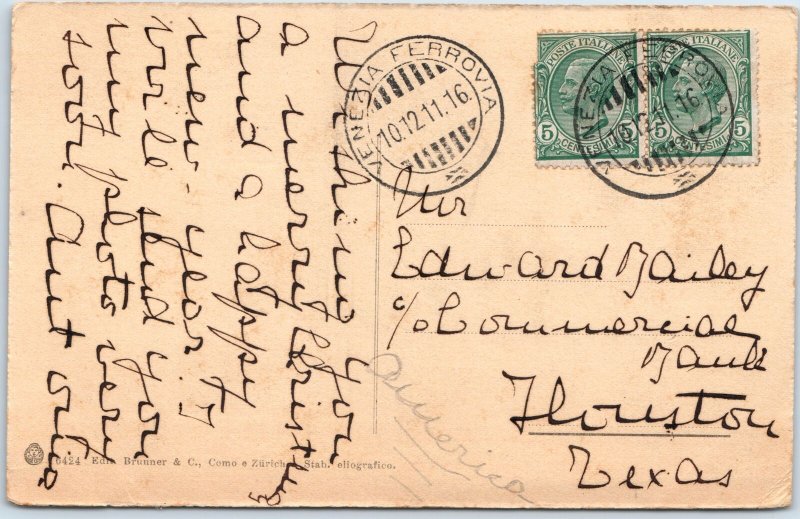 VENEZIA FERROVIA
10.12.11.16.
POSTE ITALIANE
5 CENTESIMI 5
POSTE ITALIANE
5 CENTESIMI 5
VENEZIA FERROVIA
10.12.11.16
Mr
Edward Bailey
c/o Commercial
Bank
Houston
Texas
America
you
a merry Christmas
and a happy
new-year. I
send you
my photo very
soon. Aunt
6424 Edit. Brunner & C., Como e Zürich Stab. eliografico.